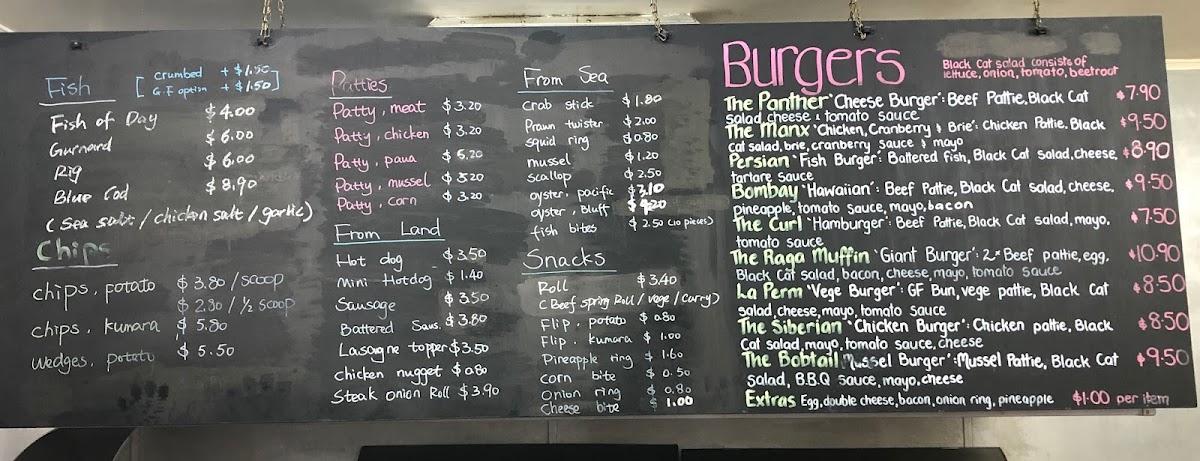 Fish
[ crumbed + $1.50
G.F option + $1.50 ]
Fish of Day $4.00
Gurnard $6.00
Rig $6.00
Blue Cod $8.90
(Sea salt / chicken salt / garlic)
Chips
chips, potato $3.80 / scoop
$2.30 / ½ scoop
chips, kumara $5.80
wedges, potato $5.50
Patties
Patty, meat $3.20
Patty, chicken $3.20
Patty, paua $5.20
Patty, mussel $3.20
Patty, corn $3.20
From Land
Hot dog $3.50
Mini Hotdog $1.40
Sausage $3.50
Battered Saus. $3.80
Lasagne topper $3.50
chicken nugget $0.80
Steak onion Roll $3.90
From Sea
Crab stick $1.80
Prawn twister $2.00
squid ring $0.80
mussel $1.20
scallop $2.50
oyster, pacific $3.10
oyster, Bluff
fish bites $2.50 (10 pieces)
Snacks
Roll $3.40
(Beef spring Roll / vege / curry)
Flip, potato $0.80
Flip, kumara $1.00
Pineapple ring $1.60
corn bite $0.50
Onion ring $0.80
Cheese bite $1.00
Burgers
Black Cat salad consists of
lettuce, onion, tomato, beetroot
The Panther 'Cheese Burger': Beef Pattie, Black Cat $7.90
salad, cheese & tomato sauce
The Manx 'Chicken, Cranberry & Brie': Chicken Pattie, Black $9.50
Cat salad, brie, cranberry sauce & mayo
Persian 'Fish Burger': Battered fish, Black Cat salad, cheese, $8.90
tartare sauce
Bombay 'Hawaiian': Beef Pattie, Black Cat salad, cheese, $9.50
pineapple, tomato sauce, mayo, bacon
The Curl 'Hamburger': Beef Pattie, Black Cat salad, mayo, $7.50
tomato sauce
The Raga Muffin 'Giant Burger': 2x Beef pattie, egg, $10.90
Black Cat salad, bacon, cheese, mayo, tomato sauce
La Perm 'Vege Burger': GF Bun, vege pattie, Black Cat $8.50
salad, cheese, mayo, tomato sauce
The Siberian 'Chicken Burger': Chicken pattie, Black $8.50
Cat salad, mayo, tomato sauce, cheese
The Bobtail 'Mussel Burger': Mussel Pattie, Black Cat $9.50
salad, B.B.Q sauce, mayo, cheese
Extras Egg, double cheese, bacon, onion ring, pineapple $1.00 per item